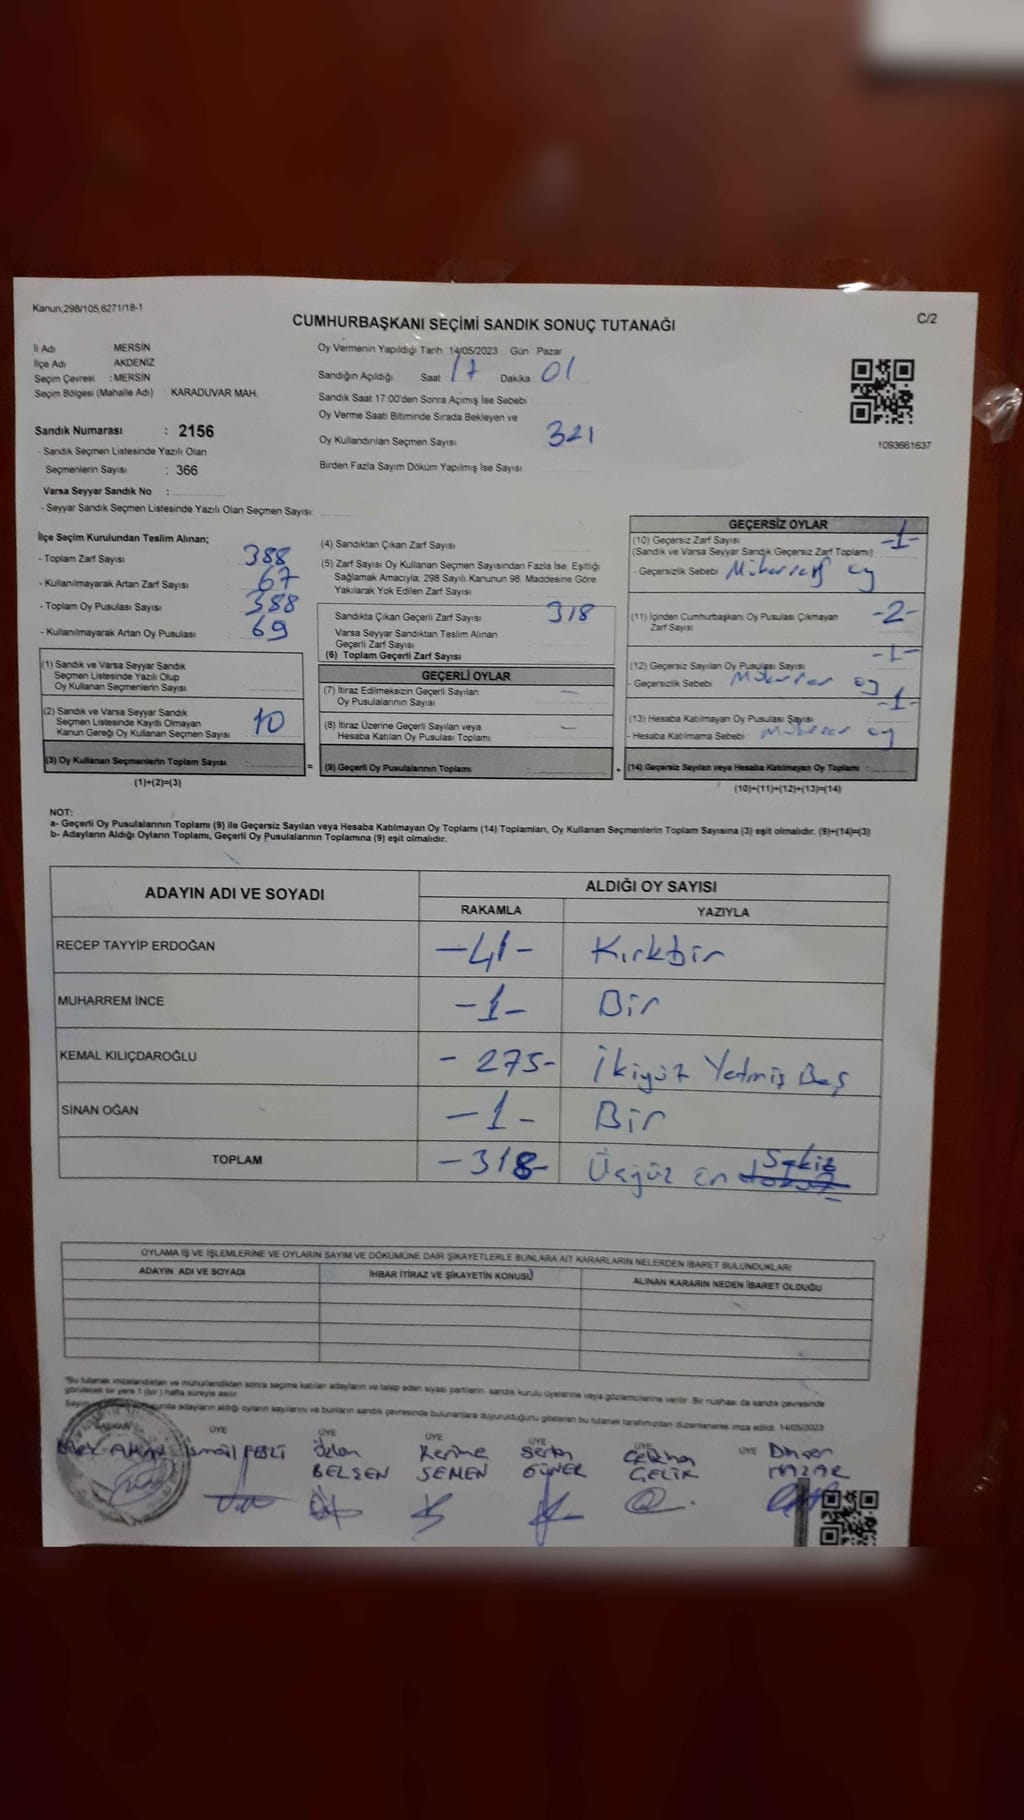 Kanun,298/105,6271/18-1
CUMHURBAŞKANI SEÇİMİ SANDIK SONUÇ TUTANAĞI
C/2
İl Adı MERSİN
İlçe Adı AKDENİZ
Seçim Çevresi : MERSİN
Seçim Bölgesi (Mahalle Adı) KARADUVAR MAH.
Sandık Numarası : 2156
- Sandık Seçmen Listesinde Yazılı Olan
Seçmenlerin Sayısı : 366
Varsa Seyyar Sandık No :
- Seyyar Sandık Seçmen Listesinde Yazılı Olan Seçmen Sayısı:
Oy Vermenin Yapıldığı Tarih 14/05/2023 Gün Pazar
Sandığın Açıldığı Saat 17 Dakika 01
Sandık Saat 17:00'den Sonra Açımış İse Sebebi
Oy Verme Saati Bitiminde Sırada Bekleyen ve
Oy Kullandırılan Seçmen Sayısı 321
Birden Fazla Sayım Döküm Yapılmış İse Sayısı
1093661637
İlçe Seçim Kurulundan Teslim Alınan;
- Toplam Zarf Sayısı : 388
- Kullanılmayarak Artan Zarf Sayısı : 67
- Toplam Oy Pusulası Sayısı : 388
- Kullanılmayarak Artan Oy Pusulası : 69
(1) Sandık ve Varsa Seyyar Sandık
Seçmen Listesinde Yazılı Olup
Oy Kullanan Seçmenlerin Sayısı
(2) Sandık ve Varsa Seyyar Sandık
Seçmen Listesinde Kayıtlı Olmayan
Kanun Gereği Oy Kullanan Seçmen Sayısı : 10
(3) Oy Kullanan Seçmenlerin Toplam Sayısı :
(1)+(2)=(3)
(4) Sandıktan Çıkan Zarf Sayısı
(5) Zarf Sayısı Oy Kullanan Seçmen Sayısından Fazla İse, Eşitliği
Sağlamak Amacıyla, 298 Sayılı Kanunun 98. Maddesine Göre
Yakılarak Yok Edilen Zarf Sayısı
Sandıkta Çıkan Geçerli Zarf Sayısı 318
Varsa Seyyar Sandıktan Teslim Alınan
Geçerli Zarf Sayısı
(6) Toplam Geçerli Zarf Sayısı
GEÇERLİ OYLAR
(7) İtiraz Edilmeksizin Geçerli Sayılan
Oy Pusulalarının Sayısı —
(8) İtiraz Üzerine Geçerli Sayılan veya
Hesaba Katılan Oy Pusulası Toplamı —
= (9) Geçerli Oy Pusulalarının Toplamı :
GEÇERSİZ OYLAR
(10) Geçersiz Zarf Sayısı -1-
(Sandık ve Varsa Seyyar Sandık Geçersiz Zarf Toplamı)
- Geçersizlik Sebebi Mükerrer oy
(11) İçinden Cumhurbaşkanı Oy Pusulası Çıkmayan
Zarf Sayısı -2-
(12) Geçersiz Sayılan Oy Pusulası Sayısı -1-
- Geçersizlik Sebebi Mükerrer oy
(13) Hesaba Katılmayan Oy Pusulası Sayısı -1-
- Hesaba Katılmama Sebebi : Mükerrer oy
+ (14) Geçersiz Sayılan veya Hesaba Katılmayan Oy Toplamı :
(10)+(11)+(12)+(13)=(14)
NOT:
a- Geçerli Oy Pusulalarının Toplamı (9) ile Geçersiz Sayılan veya Hesaba Katılmayan Oy Toplamı (14) Toplamları, Oy Kullanan Seçmenlerin Toplam Sayısına (3) eşit olmalıdır. (9)+(14)=(3)
b- Adayların Aldığı Oyların Toplamı, Geçerli Oy Pusulalarının Toplamına (9) eşit olmalıdır.
ADAYIN ADI VE SOYADI ALDIĞI OY SAYISI
RAKAMLA YAZIYLA
RECEP TAYYİP ERDOĞAN -41- Kırkbir
MUHARREM İNCE -1- Bir
KEMAL KILIÇDAROĞLU -275- İkiyüz Yetmiş Beş
SİNAN OĞAN -1- Bir
TOPLAM -318- Üçyüz on Sekiz
OYLAMA İŞ VE İŞLEMLERİNE VE OYLARIN SAYIM VE DÖKÜMÜNE DAİR ŞİKAYETLERLE BUNLARA AİT KARARLARIN NELERDEN İBARET BULUNDUKLARI
ADAYIN ADI VE SOYADI İHBAR İTİRAZ VE ŞİKAYETİN KONUSU ALINAN KARARIN NEDEN İBARET OLDUĞU
"Bu tutanak imzalandıktan ve mühürlendikten sonra seçime katılan adayların ve talep eden siyasi partilerin sandık kurulu üyelerine veya gözlemcilerine verilir. Bir nushası da sandık çevresinde
görülecek bir yere 1 (bir) hafta süreyle asılır
adayların aldığı oyların sayılarını ve bunların sandık çevresinde bulunanlara duyurulduğunu gösteren bu tutanak tarafımızdan düzenlenerek imza edildi. 14/05/2023
BAŞKAN ÜYE ÜYE ÜYE ÜYE ÜYE ÜYE
İsmail Özlem Kerime Serkan Dinçer
BELSEN SEMEN GÜNER GELİR